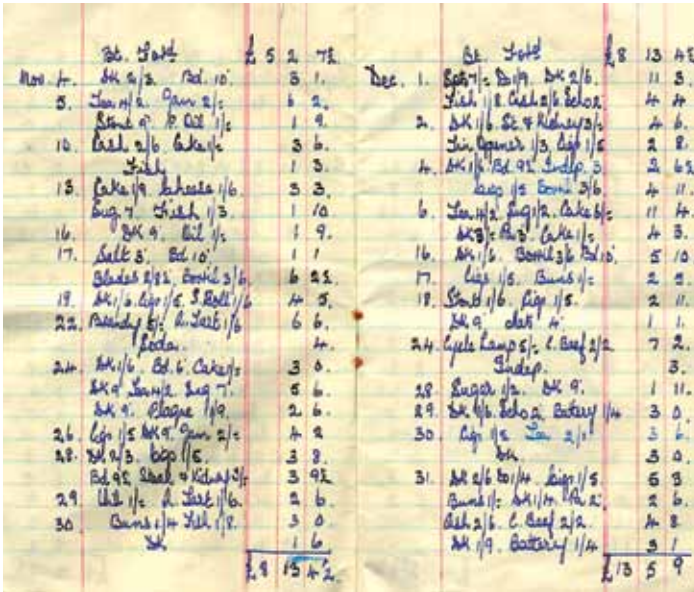 Bt. Forwd £ 5 2 7½
Nov. 4. Mk 2/3. Bd. 10 3 1.
5. Tea 4/2. Jam 2/= 6 2.
Oil 1/= 1 9.
10. Cash 2/6 Cake 1/= 3 6.
Fish 1 3.
13. Cake 1/9. Cheese 1/6. 3 3.
Sug 7. Fish 1/3. 1 10
16. Mk 9. Oil 1/= 1 9.
17. Salt 3. Bd 10. 1 1
Blades 2/8½. 3/6. 6 2½.
19. Mk 1/6. Cigs 1/5. S. Roll 1/6 4 5.
22. Brandy 5/= A. Tart 1/6 6 6.
Soda. 4.
24. Mk 1/6. Bd. 6. Cake 1/= 3 0.
Mk 9. Tea 4/2. Sug 7. 5 6.
Mk 9. 1/9. 2 6.
26. Cigs 1/5 Mk 9. Jam 2/= 4 2
28. Mk 2/3. Cigs 1/5. 3 8.
Bd 9½. Steak & Kidney 3/= 3 9½
29 Oil 1/= A Tart 1/6. 2 6.
30 Buns 1/4 Fish 1/8. 3 0.
Mk 1 6
£8 13 4½.
Bt. Forwd £8 13 4½
Dec. 1. Mk 2/6. 11 3.
Fish 1/8. Cash 2/6. Echo 2. 4 4
2. Mk 1/6. St. & Kidney 3/= 4 6.
Tin Opener 1/3. Cigs 1/5 2 8.
4. Mk 1/6 Bd 9½. Indep. 3 2 6½
Cigs 1/5 3/6. 4 11.
6. Tea 4/2. Sug 1/2. Cake 6/= 11 4.
Mk 3/= Cake 1/= 4 3.
16. Mk 1/6. 3/6 Bd 10. 5 10
17. Cigs 1/5. Buns 1/= 2 5.
18. Stout 1/6. Cigs 1/5. 2 11.
Mk 9. 4. 1 1.
24. Cycle Lamp 5/= C. Beef 2/2 7 2.
Indep. 3.
28. Sugar 1/2. Mk 9. 1 11.
29. Mk 1/6. Echo 2. Battery 1/4 3 0.
30. Cigs 1/5 Tea 2/1. 3 6.
Mk. 3 0.
31. Mk 2/6 1/4. Cigs 1/5. 5 3
Buns 1/= Mk 1/4. 2. 2 6.
Cash 2/6. C. Beef 2/2. 4 8.
Mk 1/9. Battery 1/4 3 1
£13 5 9